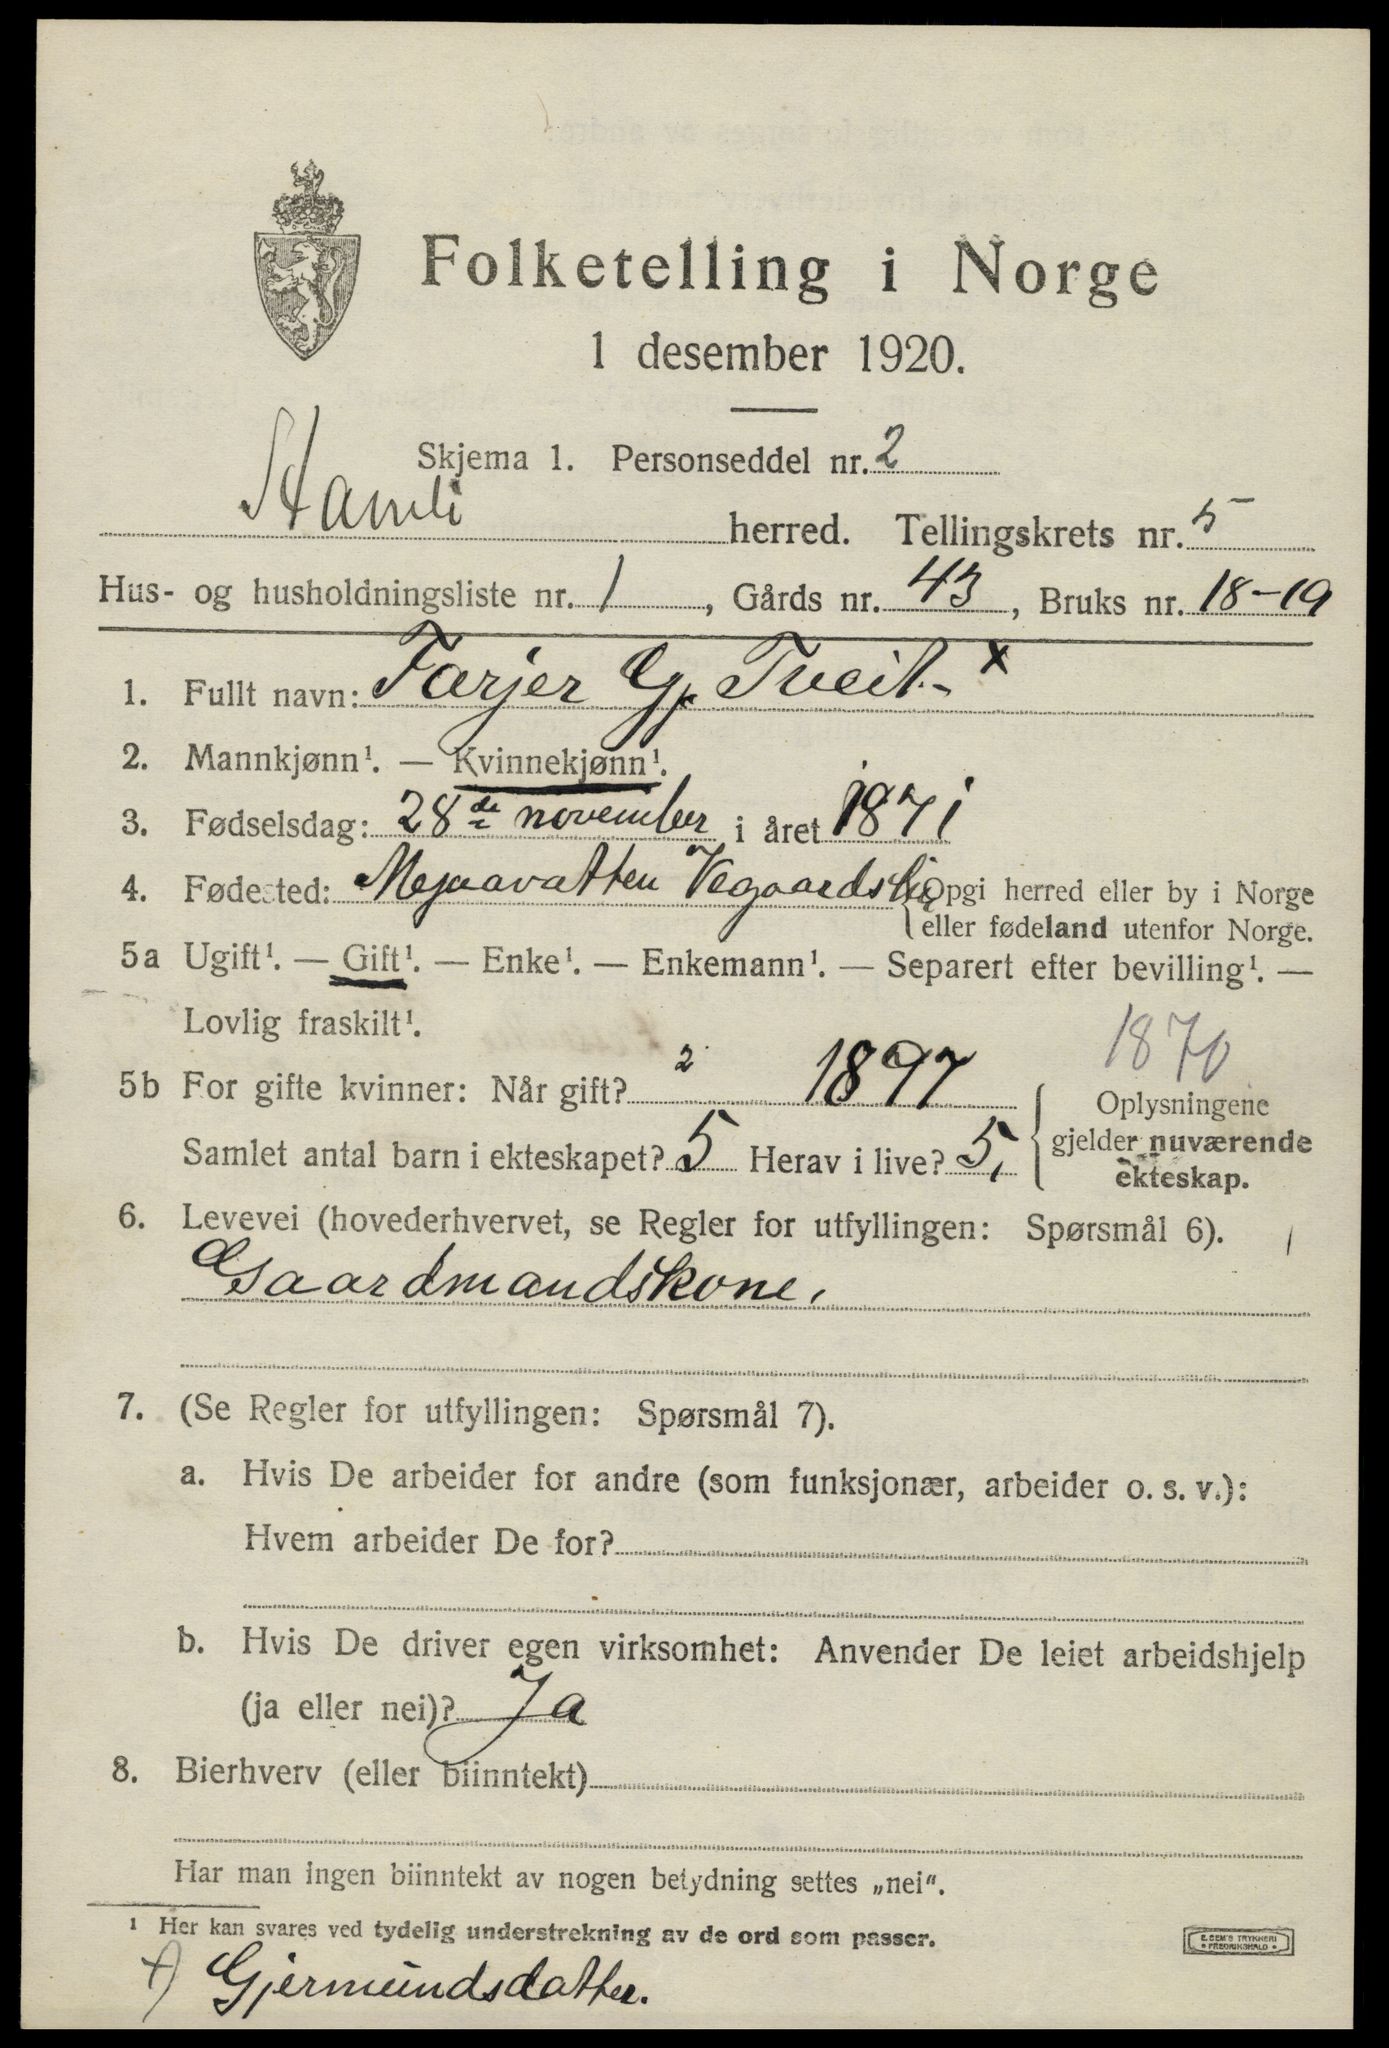 Folketelling i Norge
1 desember 1920.
Skjema 1. Personseddel nr. 2
herred. Tellingskrets nr. 5
Hus- og husholdningsliste nr. 1, Gårds nr. 43, Bruks nr. 18-19
1. Fullt navn: Tarjer Gj. Tveit. x
2. Mannkjønn¹. — Kvinnekjønn¹.
3. Fødselsdag: 28de november i året 1871
4. Fødested: Mejaavatten Vegaardsli {Opgi herred eller by i Norge
eller fødeland utenfor Norge.
5a Ugift¹. — Gift¹. — Enke¹. — Enkemann¹. — Separert efter bevilling¹. —
Lovlig fraskilt¹.
1870
5b For gifte kvinner: Når gift? 2 1897
Samlet antal barn i ekteskapet? 5 Herav i live? 5,
Oplysningene
gjelder nuværende
ekteskap.
6. Levevei (hovederhvervet, se Regler for utfyllingen: Spørsmål 6). 1
Gaardmandskone.
7. (Se Regler for utfyllingen: Spørsmål 7).
a. Hvis De arbeider for andre (som funksjonær, arbeider o. s. v.):
Hvem arbeider De for?
b. Hvis De driver egen virksomhet: Anvender De leiet arbeidshjelp
(ja eller nei)? Ja
8. Bierhverv (eller biinntekt)
Har man ingen biinntekt av nogen betydning settes „nei".
¹ Her kan svares ved tydelig understrekning av de ord som passer.
E. SEM'S TRYKKERI
• FREDRIKSHALD •
x) Gjermundsdatter.